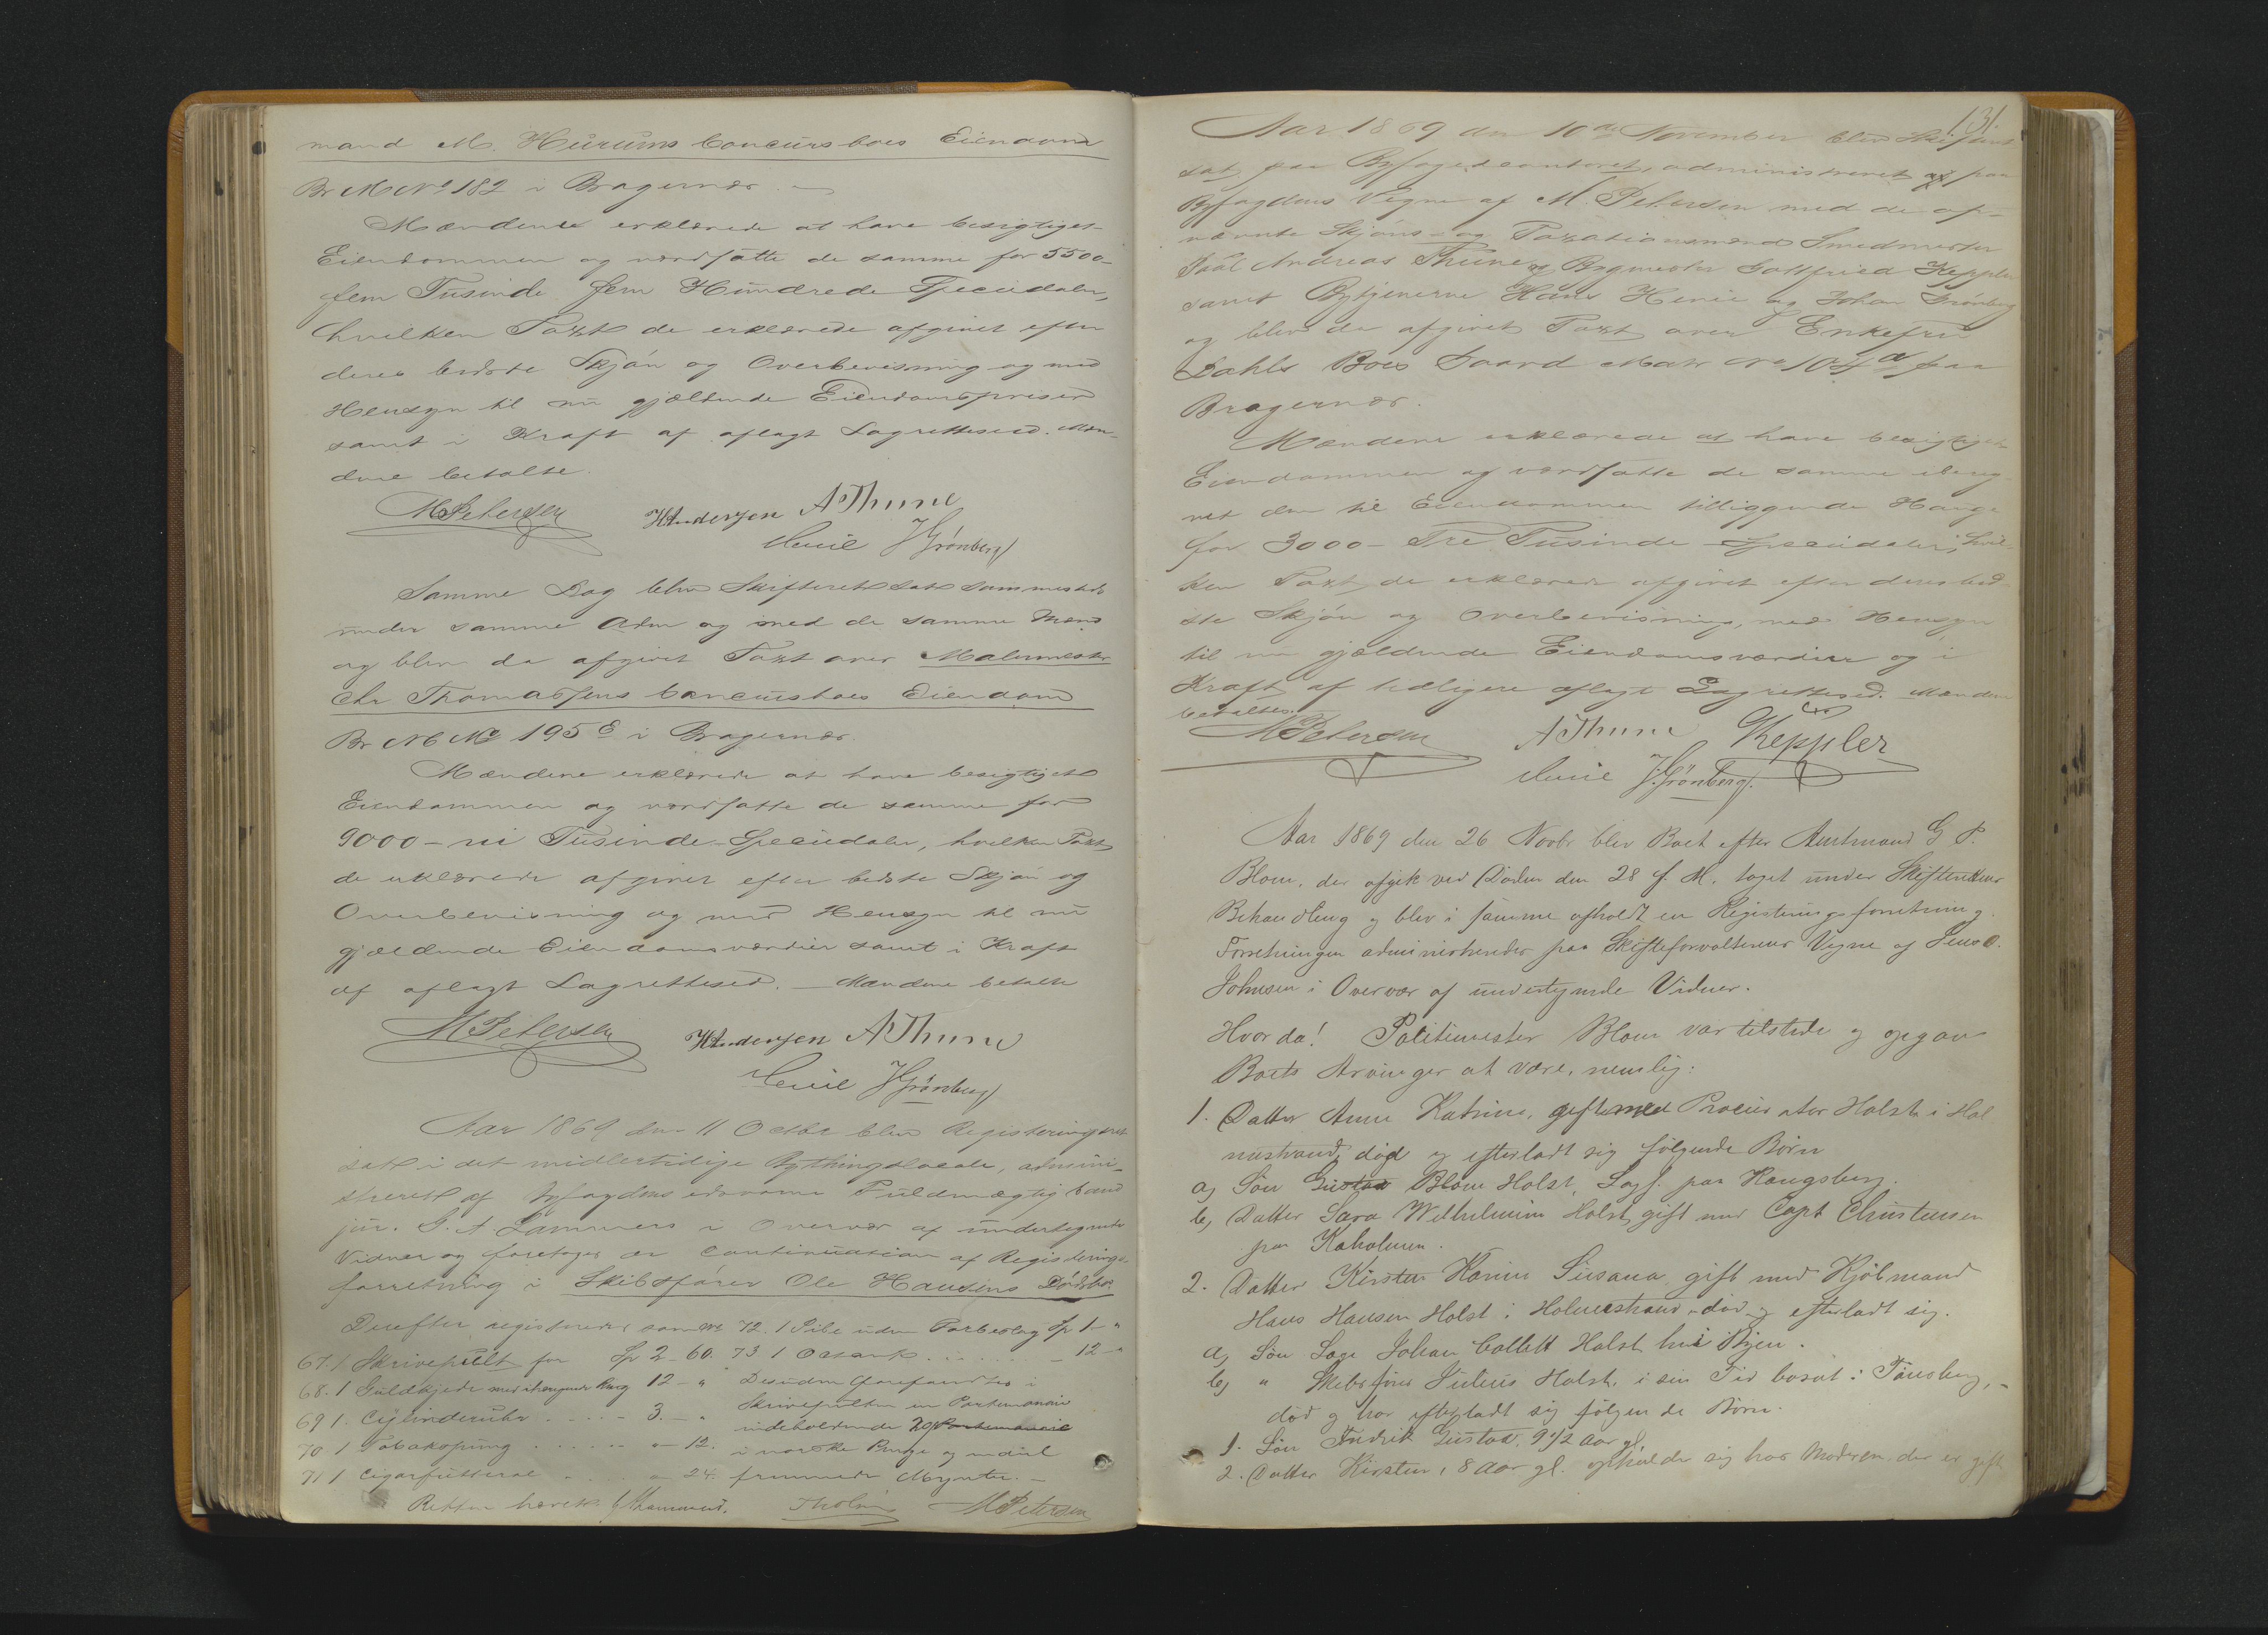 mand M. Hurums Concursboes Eiendom
Br M No 182 i Bragernæs.
Mændene erklærede at have besigtiget
Eiendommen og værdsatte de samme for 5500-
fem Tusinde fem Hundrede Speciedaler,
hvilken Taxt de erklærede afgivet efter
deres bedste Skjøn og Overbevisning og med
Hensyn til nu gjældende Eiendomspriser
samt i Kraft af aflagt Lagrettesed. Mæn-
dene betalte.
MPetersen HAndersen AThune
Henie JGrønberg
Samme Dag blev Skifteret sat sammesteds
under samme Adm og med de samme Mænd
og blev da afgivet Taxt over Malermester
Chr Thomassens Concursboes Eiendom
Br M No 195 E i Bragernæs.
Mændene erklærede at have besigtiget
Eiendommen og værdsatte de samme for
9000 - ni Tusinde Speciedaler, hvilken Taxt
de erklærede afgivet efter bedste Skjøn og
Overbevisning og med Hensyn til nu
gjældende Eiendomsværdier samt i Kraft
af aflagt Lagrettesed. - Mændene betalte
MPetersen HAndersen AThune
Henie JGrønberg
Aar 1869 den 11 Octbr blev Registeringsret
sat i det midlertidige Bythingslocale, admini-
streret af Byfogdens edsvorne Fuldmægtig Cand
jur. G. A. Lammers i Overvær af undertegnede
Vidner og foretoges en Continuation af Registerings-
forretning i Skibsfører Ole Hansens Dødsbo.
Derefter registreredes som No 72. 1 Pibe uden Porbeslag Sp 1 - "
67. 1 Skrivepult for Sp 2 - 60. 73 1 . . . . . - 12 - "
68. 1 Guldkjede med ihengende Ring 12 - " Desuden forefandtes i
69 1. Cylinderuhr . . . . - 3. - " Skrivepulten en Portemonnaie
70. 1 Tobakspung . . . . . " - 12. indeholdende Portemonnaie
i norske Penge og endel
71 1 Cigarfutteral . . . " - 24. fremmede Mynter. -
Retten hævet. GALammers. Tholm MPetersen
131.
Aar 1869 den 10de November blev Skifteret
sat paa Byfogedcontoret, administreret af paa
Byfogdens Vegne af M. Petersen med de op-
nævnte Skjøns- og Taxationsmænd Smedmester
Paal Andreas Thune og Bygmester Gottfried Keppler
samt Bytjenerne Hans Henie og Johan Grønberg
og blev da afgivet Taxt over Enkefru
Dahls Boes Gaard Matr No 104 a paa
Bragernæs.
Mændene erklærede at have besigtiget
Eiendommen og værdsatte de samme ibereg-
net den til Eiendommen tilliggende Hauge
for 3000 - Tre Tusinde Speciedaler, hvil-
ken Taxt de erklærede afgivet efter deres bed-
ste Skjøn og Overbevisning, med Hensyn
til nu gjældende Eiendomsværdier og i
Kraft af tidligere aflagt Lagrettesed. Mændene
betaltes.
MPetersen AThune Keppler
Henie JGrønberg.
Aar 1869 den 26 Novbr blev Boet efter Amtmand G P.
Blom, der afgik ved Døden den 28 f. M. taget under Skifterettens
Behandling og blev i samme afholdt en Registeringsforretning.
Forretningen administreredes paa Skifteforvalterens Vegne af Jens O.
Johnsen i Overvær af undertegnede Vidner.
Hvor da! Politimester Blom var tilstede og opgav
Boets Arvinger at være, nemlig:
1. Datter Anne Katrine, gift med Procurator Holst i Hol
mestrand, død og efterladt sig følgende Børn
a, Søn Gustav Blom Holst, Sagf. paa Kongsberg.
b, Datter Sara Wilhelmine Holst, gift med Capt Christensen
paa Kaholmen.
2. Datter Kirsten Karine Susana, gift med Kjøbmand
Hans Hansen Holst i Holmestrand - død og efterladt sig.
a, Søn Sage Johan Collett Holst her i Byen.
b, " Skibsfører Julius Holst, i sin Tid bosat i Tønsberg, -
død og har efterladt sig følgende Børn.
1. Søn Fredrik Gustav, 9 1/2 Aar gl.
2. Datter Kirsten, 8 Aar gl. opholder sig hos Moderen, der er gift